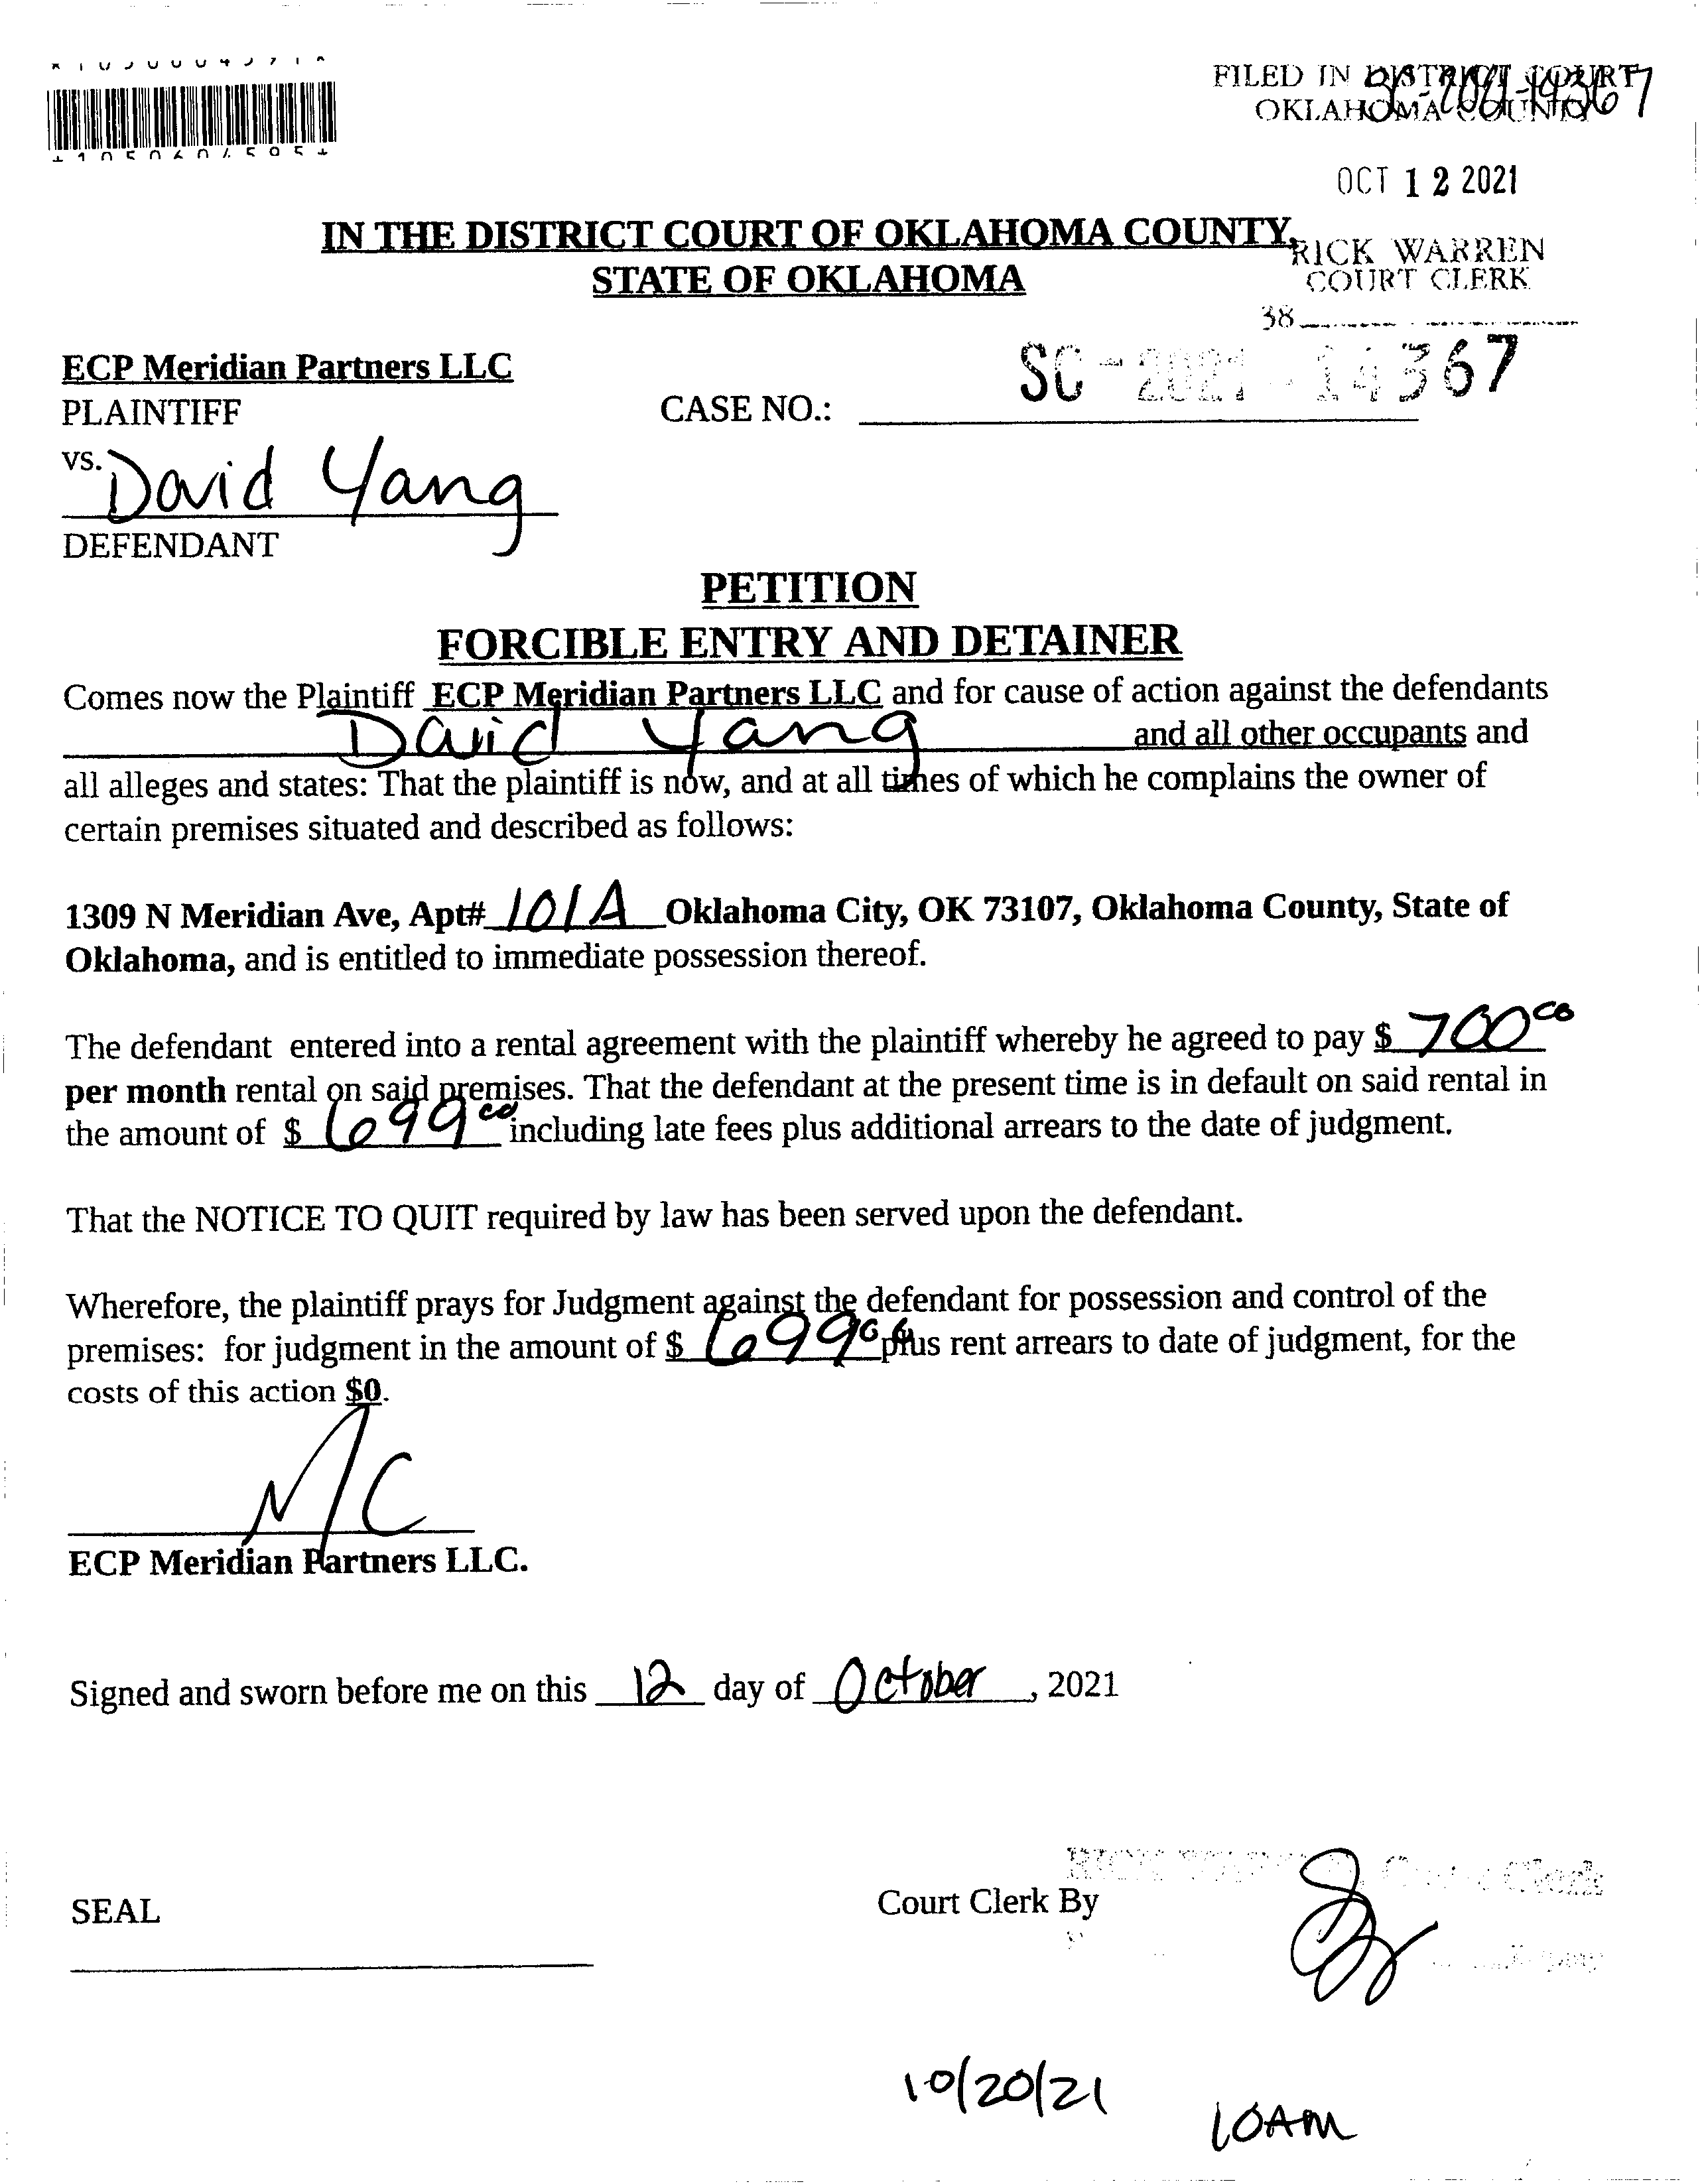 FILED IN DISTRICT COURT
OKLAHOMA COUNTY
SC-2021-14367
OCT 12 2021
IN THE DISTRICT COURT OF OKLAHOMA COUNTY,
STATE OF OKLAHOMA
RICK WARREN
COURT CLERK
38
ECP Meridian Partners LLC
PLAINTIFF
CASE NO.: SC-2021-14367
vs. David Yang
DEFENDANT
PETITION
FORCIBLE ENTRY AND DETAINER
Comes now the Plaintiff ECP Meridian Partners LLC and for cause of action against the defendants
David Yang and all other occupants and
all alleges and states: That the plaintiff is now, and at all times of which he complains the owner of
certain premises situated and described as follows:
1309 N Meridian Ave, Apt# 101A Oklahoma City, OK 73107, Oklahoma County, State of
Oklahoma, and is entitled to immediate possession thereof.
The defendant entered into a rental agreement with the plaintiff whereby he agreed to pay $ 700 00
per month rental on said premises. That the defendant at the present time is in default on said rental in
the amount of $ 699 00 including late fees plus additional arrears to the date of judgment.
That the NOTICE TO QUIT required by law has been served upon the defendant.
Wherefore, the plaintiff prays for Judgment against the defendant for possession and control of the
premises: for judgment in the amount of $ 699 00 plus rent arrears to date of judgment, for the
costs of this action $0.
MC
ECP Meridian Partners LLC.
Signed and sworn before me on this 12 day of October, 2021
RICK WARREN, Court Clerk
SEAL
Court Clerk By
10/20/21
10AM